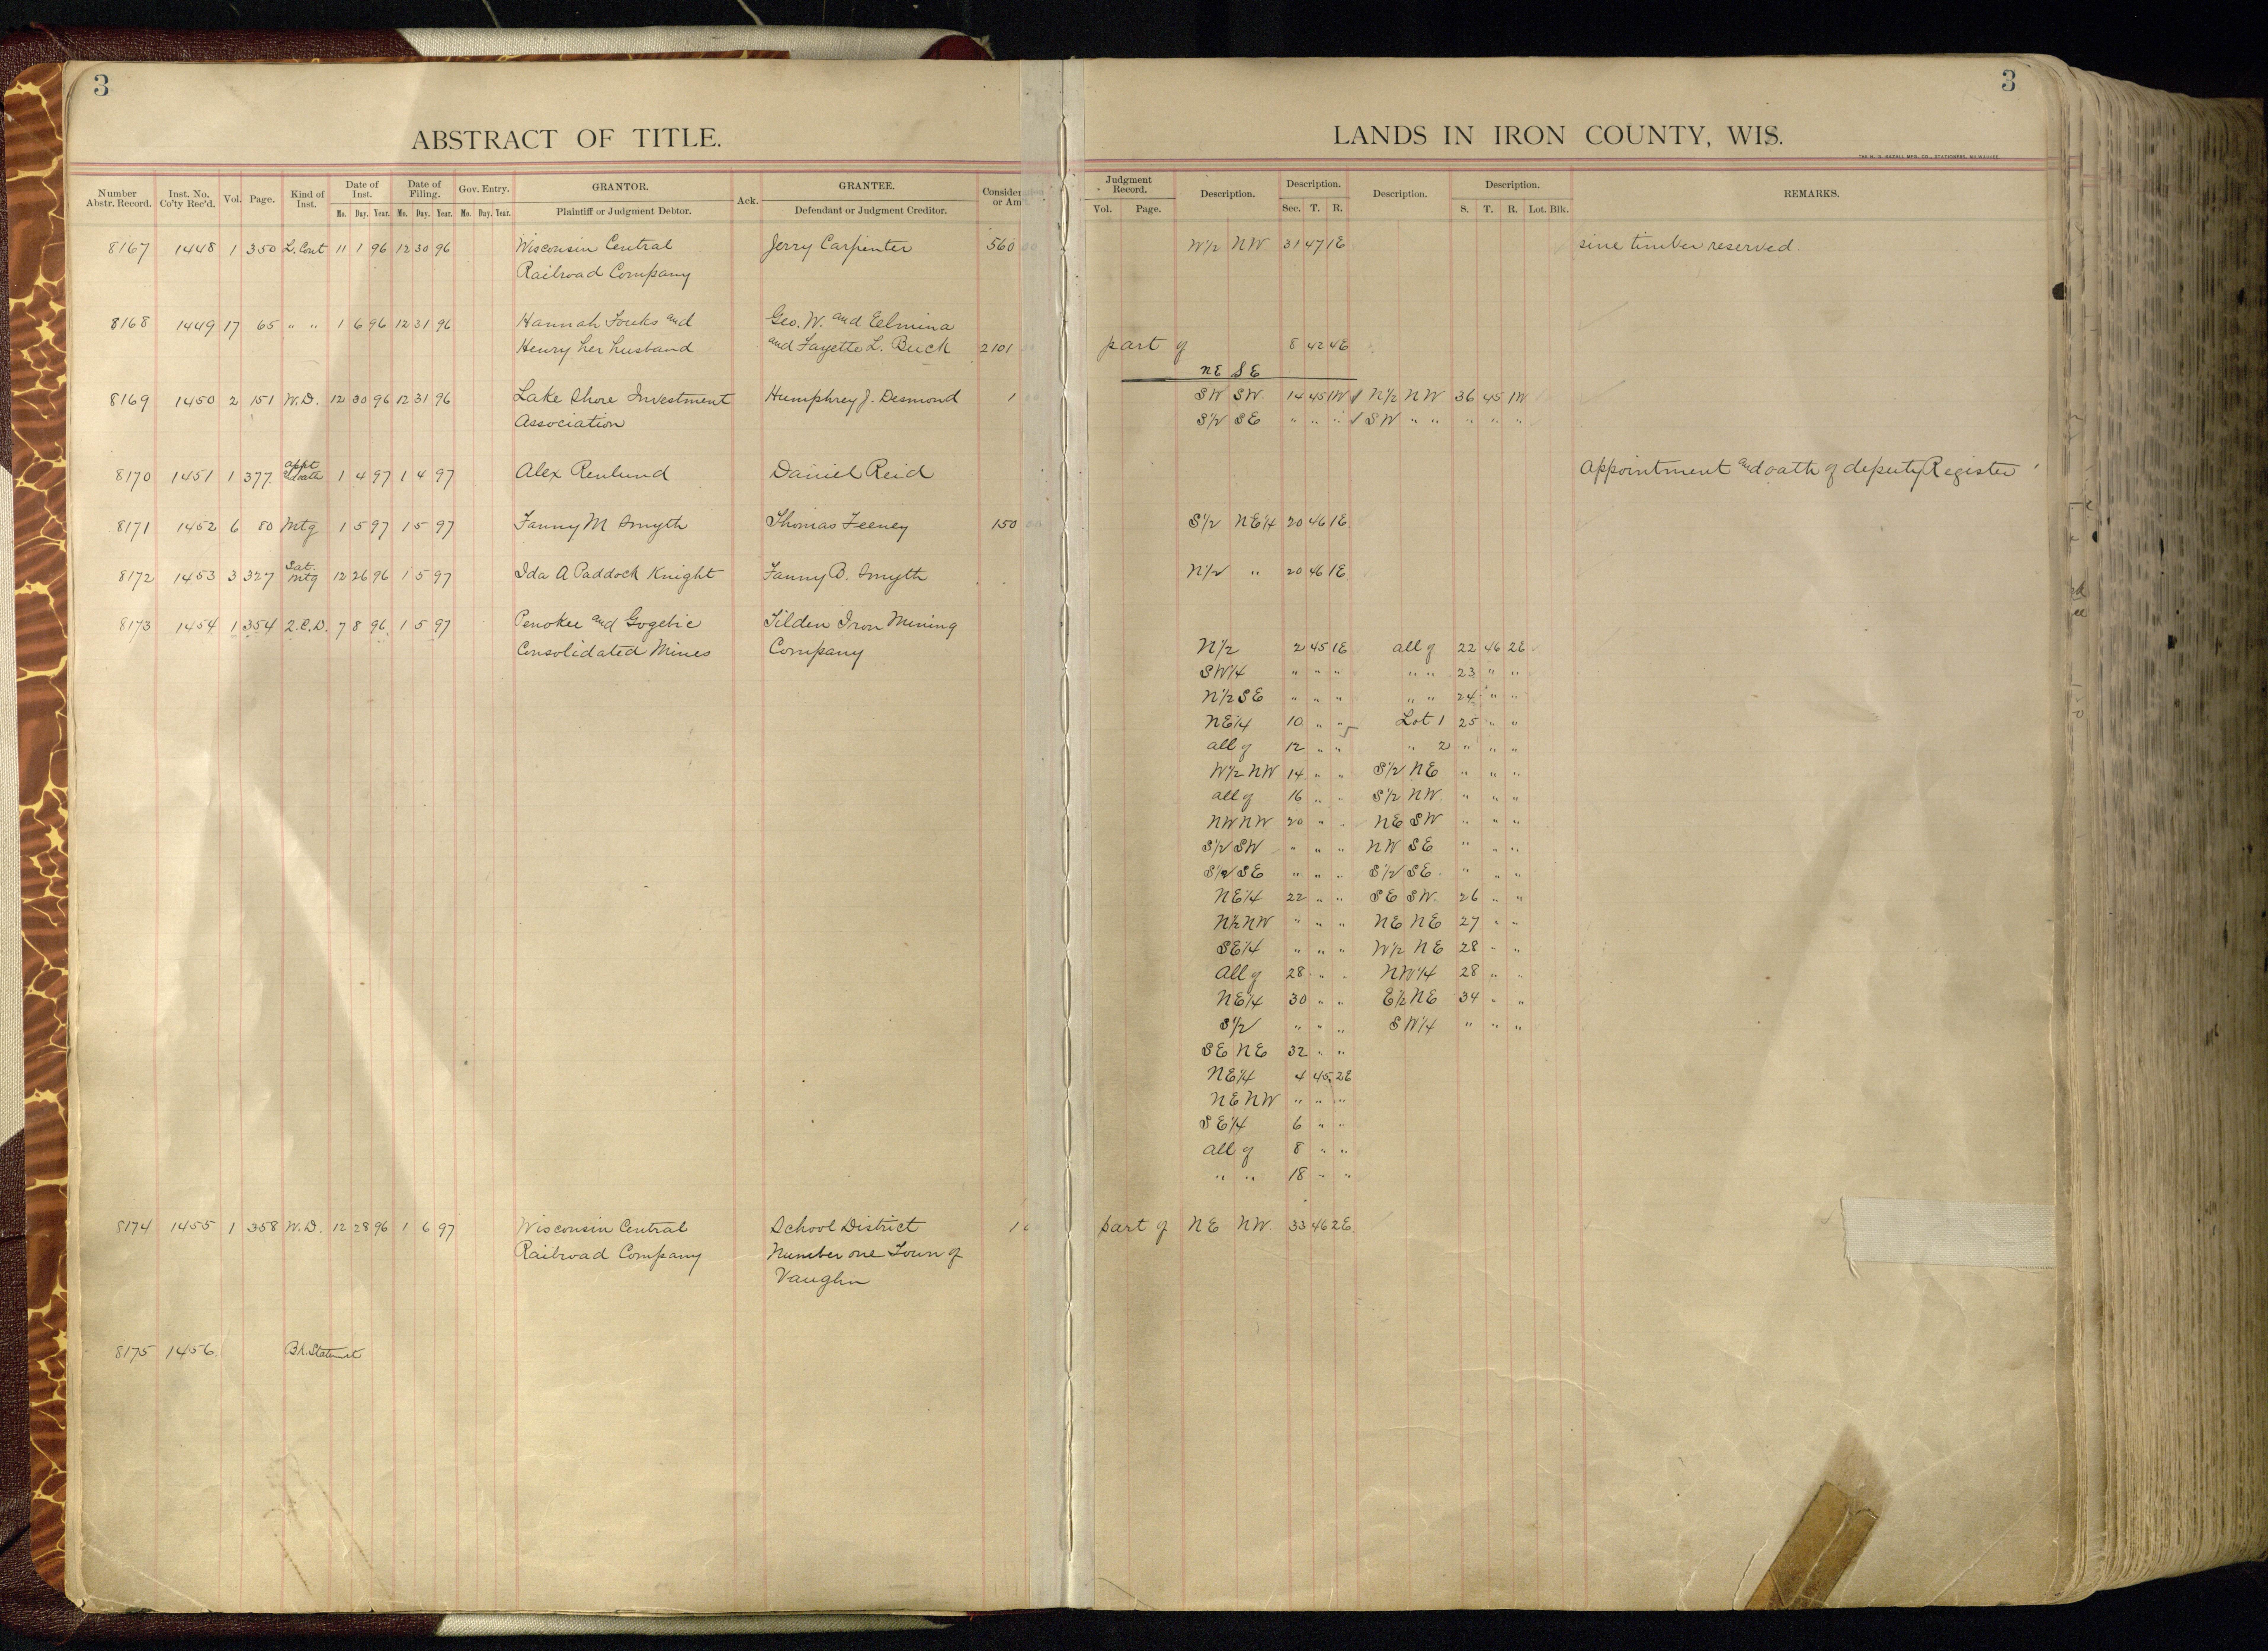 3
3
ABSTRACT OF TITLE.
LANDS IN IRON COUNTY, WIS.
Number Abstr. Record. Inst. No. Co'ty Rec'd. Vol. Page. Kind of Inst. Date of Inst. Mo. Day. Year. Date of Filing. Mo. Day. Year. Gov. Entry. Mo. Day. Year. GRANTOR. Plaintiff or Judgment Debtor. Ack. GRANTEE. Defendant or Judgment Creditor. Judgment Record. Vol. Page. Description. Description. Sec. T. R. Description. Description. S. T. R. Lot. Blk. REMARKS.
8167 1448 1 350 L. Cont 11 1 96 12 30 96 Wisconsin Central Jerry Carpenter 560 W1/2 NW 31 47 1E timber reserved.
Railroad Company
8168 1449 17 65 " " 1 6 96 12 31 96 Hannah and Geo. W. and
Henry her husband and Fayette L. Buck 2101 part of 8 42 4E
NE SE
8169 1450 2 151 W.D. 12 30 96 12 31 96 Lake Shore Investment Humphrey J. Desmond 1 SW SW 14 45 1W N1/2 NW 36 45 1W
Association S1/2 SE " " " SW " " " " "
8170 1451 1 377 Appt and oath 1 4 97 1 4 97 Alex Renlund Daniel Reid Appointment and oath of deputy Register
8171 1452 6 80 Mtg 1 5 97 1 5 97 Fanny M Smyth Thomas Feeney 150 S1/2 NE1/4 20 46 1E
8172 1453 3 327 Sat. Mtg 12 26 96 1 5 97 Ida A Paddock Knight Fanny B. Smyth N1/2 " 20 46 1E
8173 1454 1 354 2.C.D. 7 8 96 1 5 97 Penokee and Gogebic Tilden Iron Mining
Consolidated Mines Company N1/2 2 45 1E all of 22 46 2E
SW1/4 " " " " " 23 " "
N1/2 SE " " " " " 24 " "
NE1/4 10 " " Lot 1 25 " "
all of 12 " " " 2 " " "
W1/2 NW 14 " " S1/2 NE " " "
all of 16 " " S1/2 NW " " "
NW NW 20 " " NE SW " " "
S1/2 SW " " " NW SE " " "
S1/2 SE " " " S1/2 SE " " "
NE1/4 22 " " SE SW 26 " "
N1/2 NW " " " NE NE 27 " "
SE1/4 " " " W1/2 NE 28 " "
all of 28 " " NW1/4 28 " "
NE1/4 30 " " E1/2 NE 34 " "
S1/2 " " " SW1/4 " " "
SE NE 32 " "
NE1/4 4 45 2E
NE NW " " "
SE1/4 6 " "
all of 8 " "
" " 18 " "
8174 1455 1 358 W.D. 12 28 96 1 6 97 Wisconsin Central School District 1 part of NE NW. 33 46 2E
Railroad Company Number one Town of
Vaughn
8175 1456 Bk. Statement